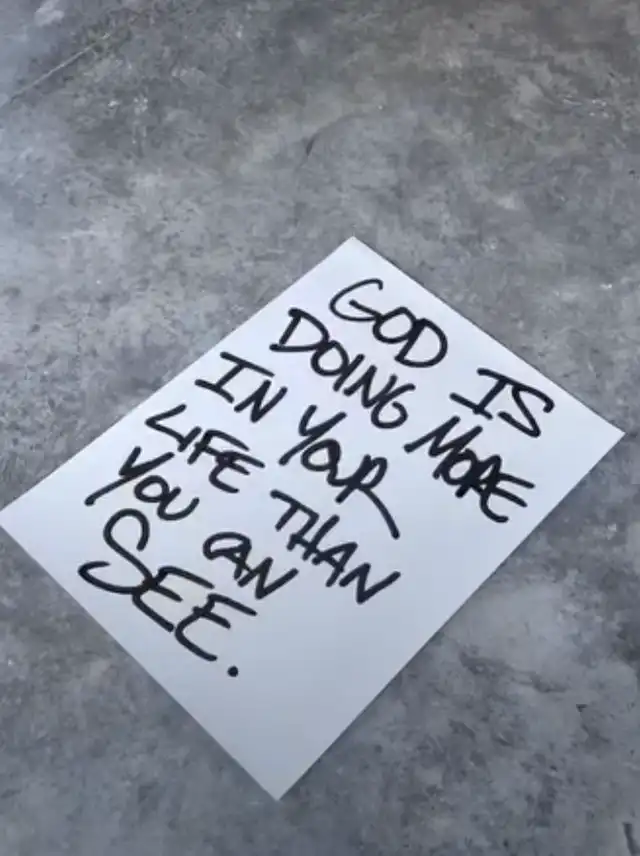 GOD IS
DOING MORE
IN YOUR
LIFE THAN
YOU CAN
SEE.